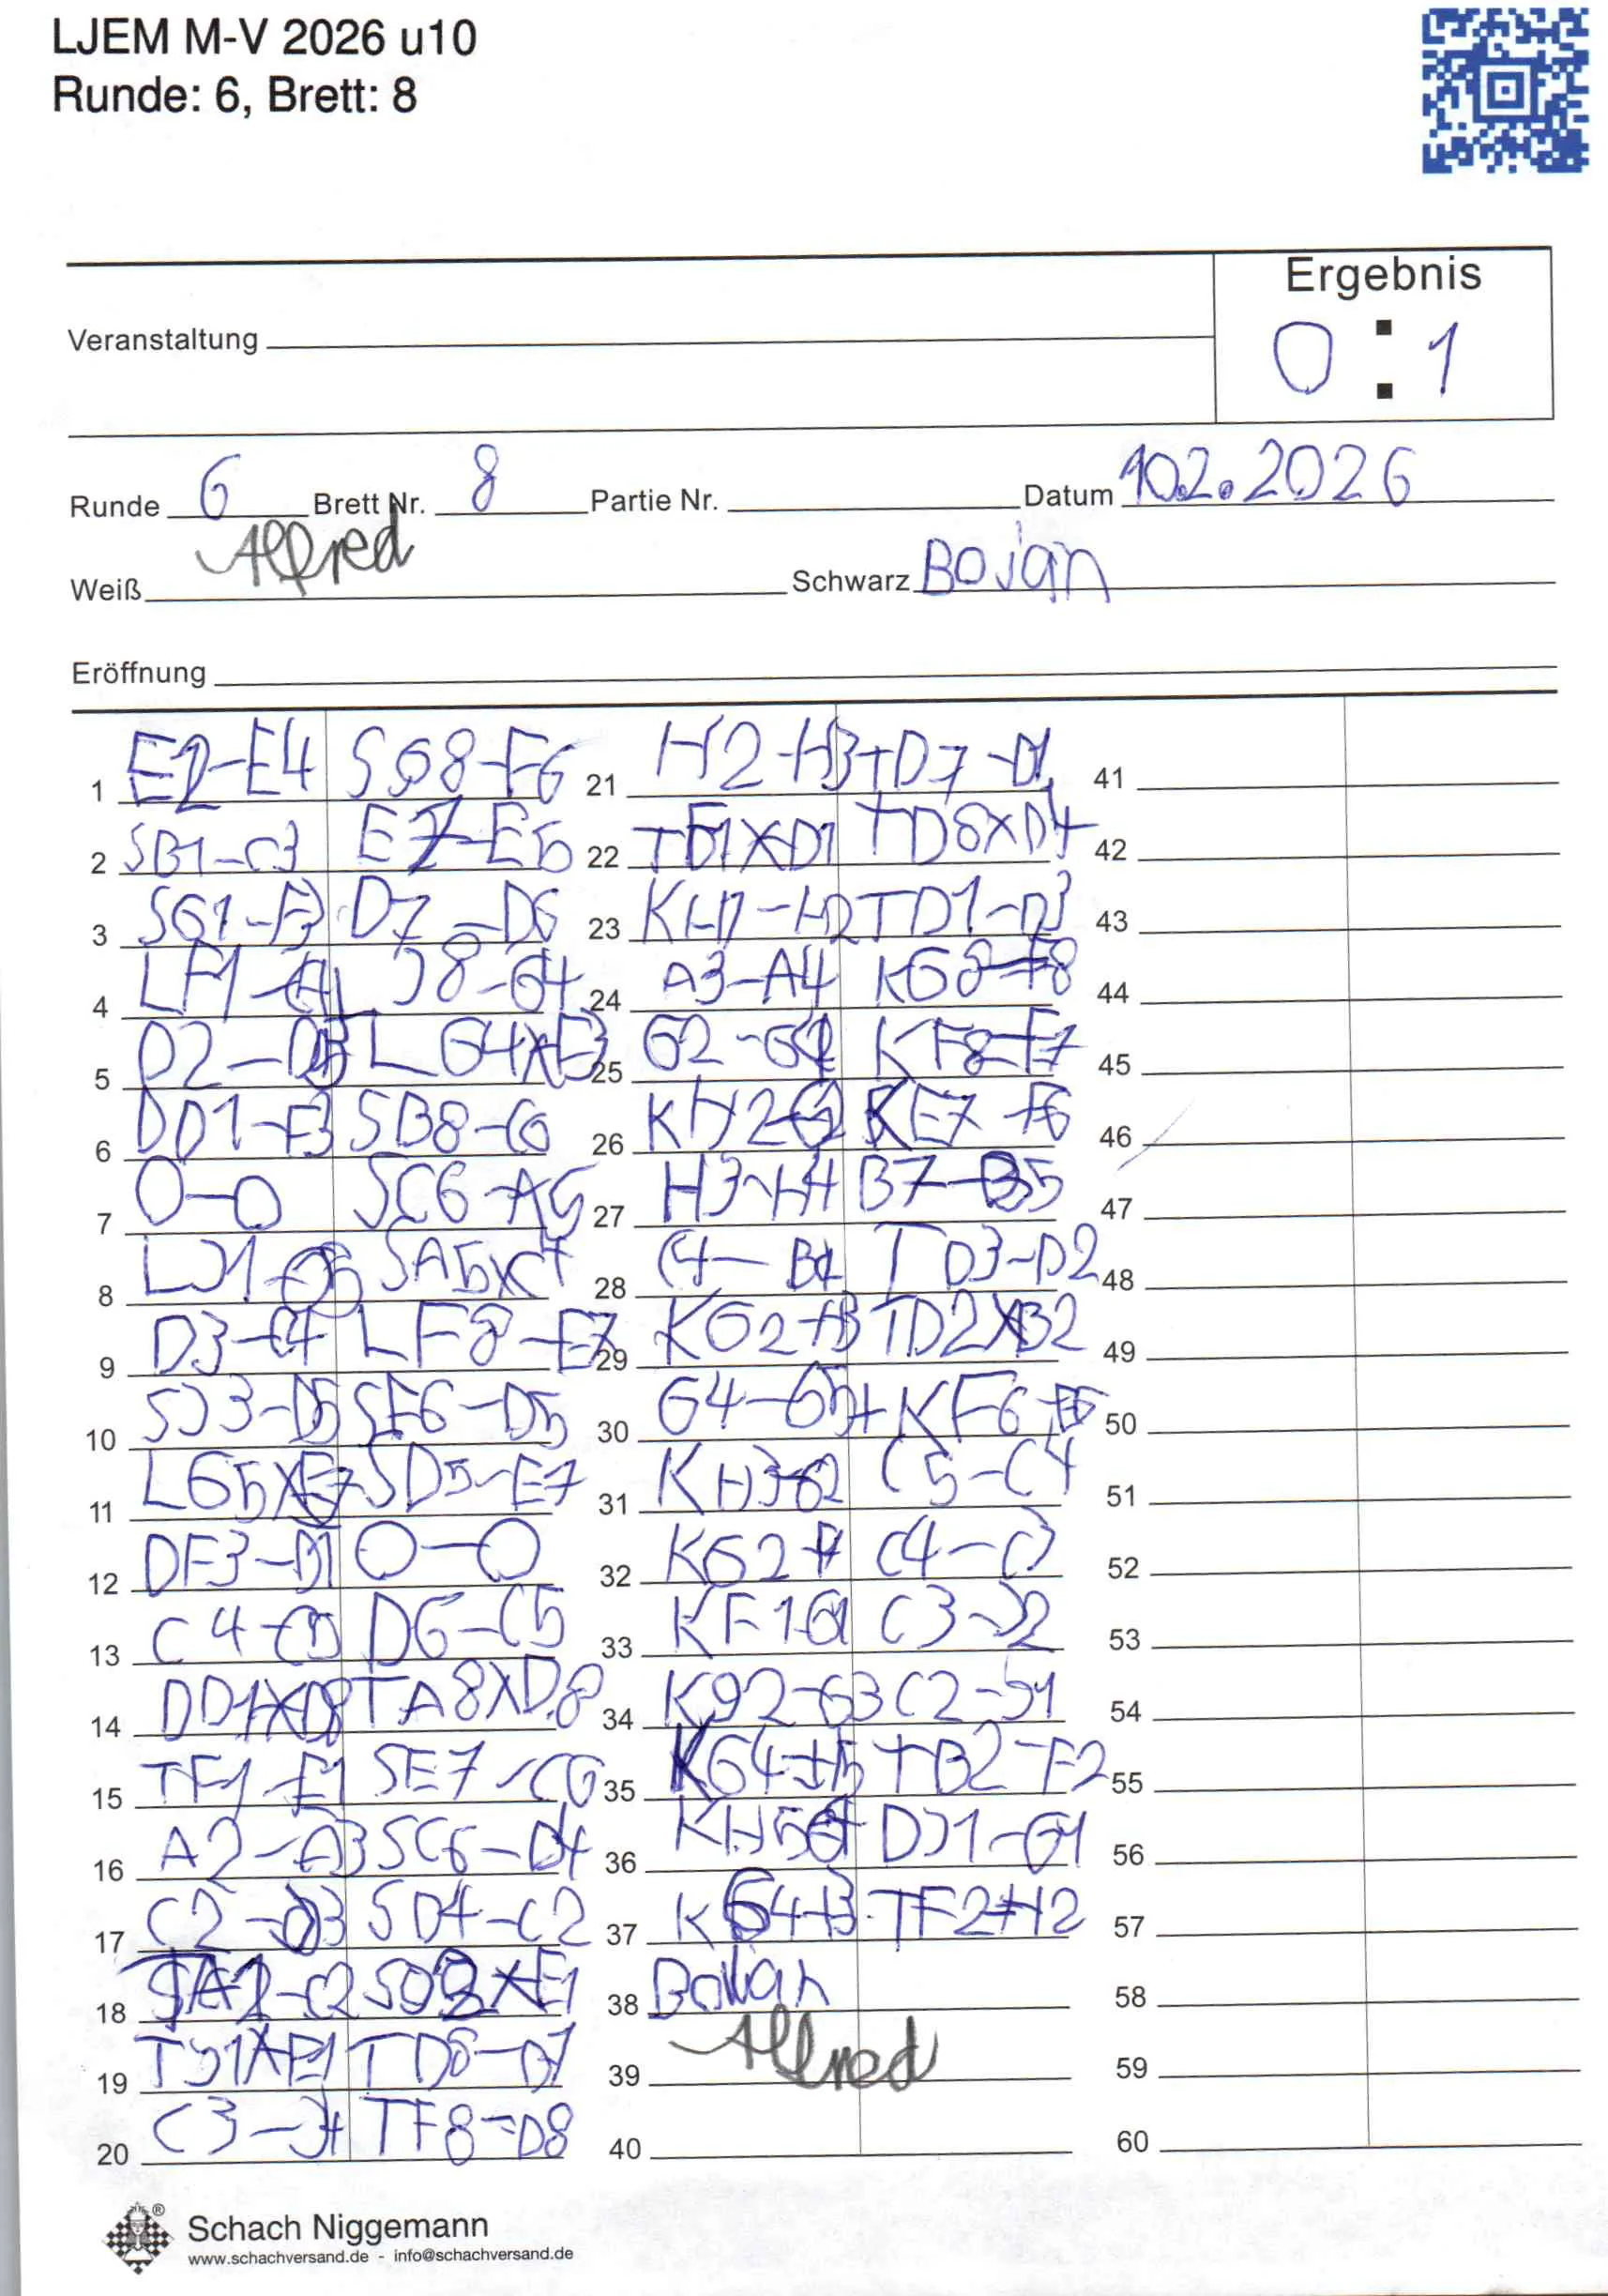 LJEM M-V 2026 u10
Runde: 6, Brett: 8
Ergebnis
0 : 1
Veranstaltung
Runde 6 Brett Nr. 8 Partie Nr. Datum 10.2.2026
Weiß Alfred Schwarz Bojan
Eröffnung
1 E2-E4 SG8-F6
2 SB1-C3 E7-E5
3 SG1-F3 D7-D6
4 LF1-C4 L J8-G4
5 D2-D3 L G4XF3
6 DD1-F3 SB8-C6
7 O-O SC6-A5
8 LJ1-G5 SA5XC4
9 D3-C4 LF8-E7
10 SJ3-D5 SF6-D5
11 LG5XE7 SD5-E7
12 DF3-D1 O-O
13 C4-C5 D6-C5
14 DD1XD8 TA8XD8
15 TF1-E1 SE7-C6
16 A2-A3 SC6-D4
17 C2-C3 SD4-C2
18 TA1-C2 SC2XE1
19 TJ1XE1 TD8-D7
20 C3-J4 TF8-D8
21 H2-H3 TD7-D1
22 TE1XD1 TD8XD1
23 KH1-H2 TD1-D3
24 A3-A4 KG8-F8
25 G2-G4 KF8-E7
26 KH2-G2 KE7-F6
27 H3-H4 B7-B5
28 C4-B4 TD3-D2
29 KG2-H3 TD2XB2
30 G4-G5+ KF6-E6
31 KH3-G2 C5-C4
32 KG2-F1 C4-C3
33 KF1G1 C3-J2
34 KG2-G3 C2-J1
35 KG4-H5 TB2-F2
36 KH5G4 DJ1-G1
37 KG4H3 TF2-H2
38 Bojan
39 Alfred
40
41
42
43
44
45
46
47
48
49
50
51
52
53
54
55
56
57
58
59
60
Schach Niggemann
www.schachversand.de - info@schachversand.de